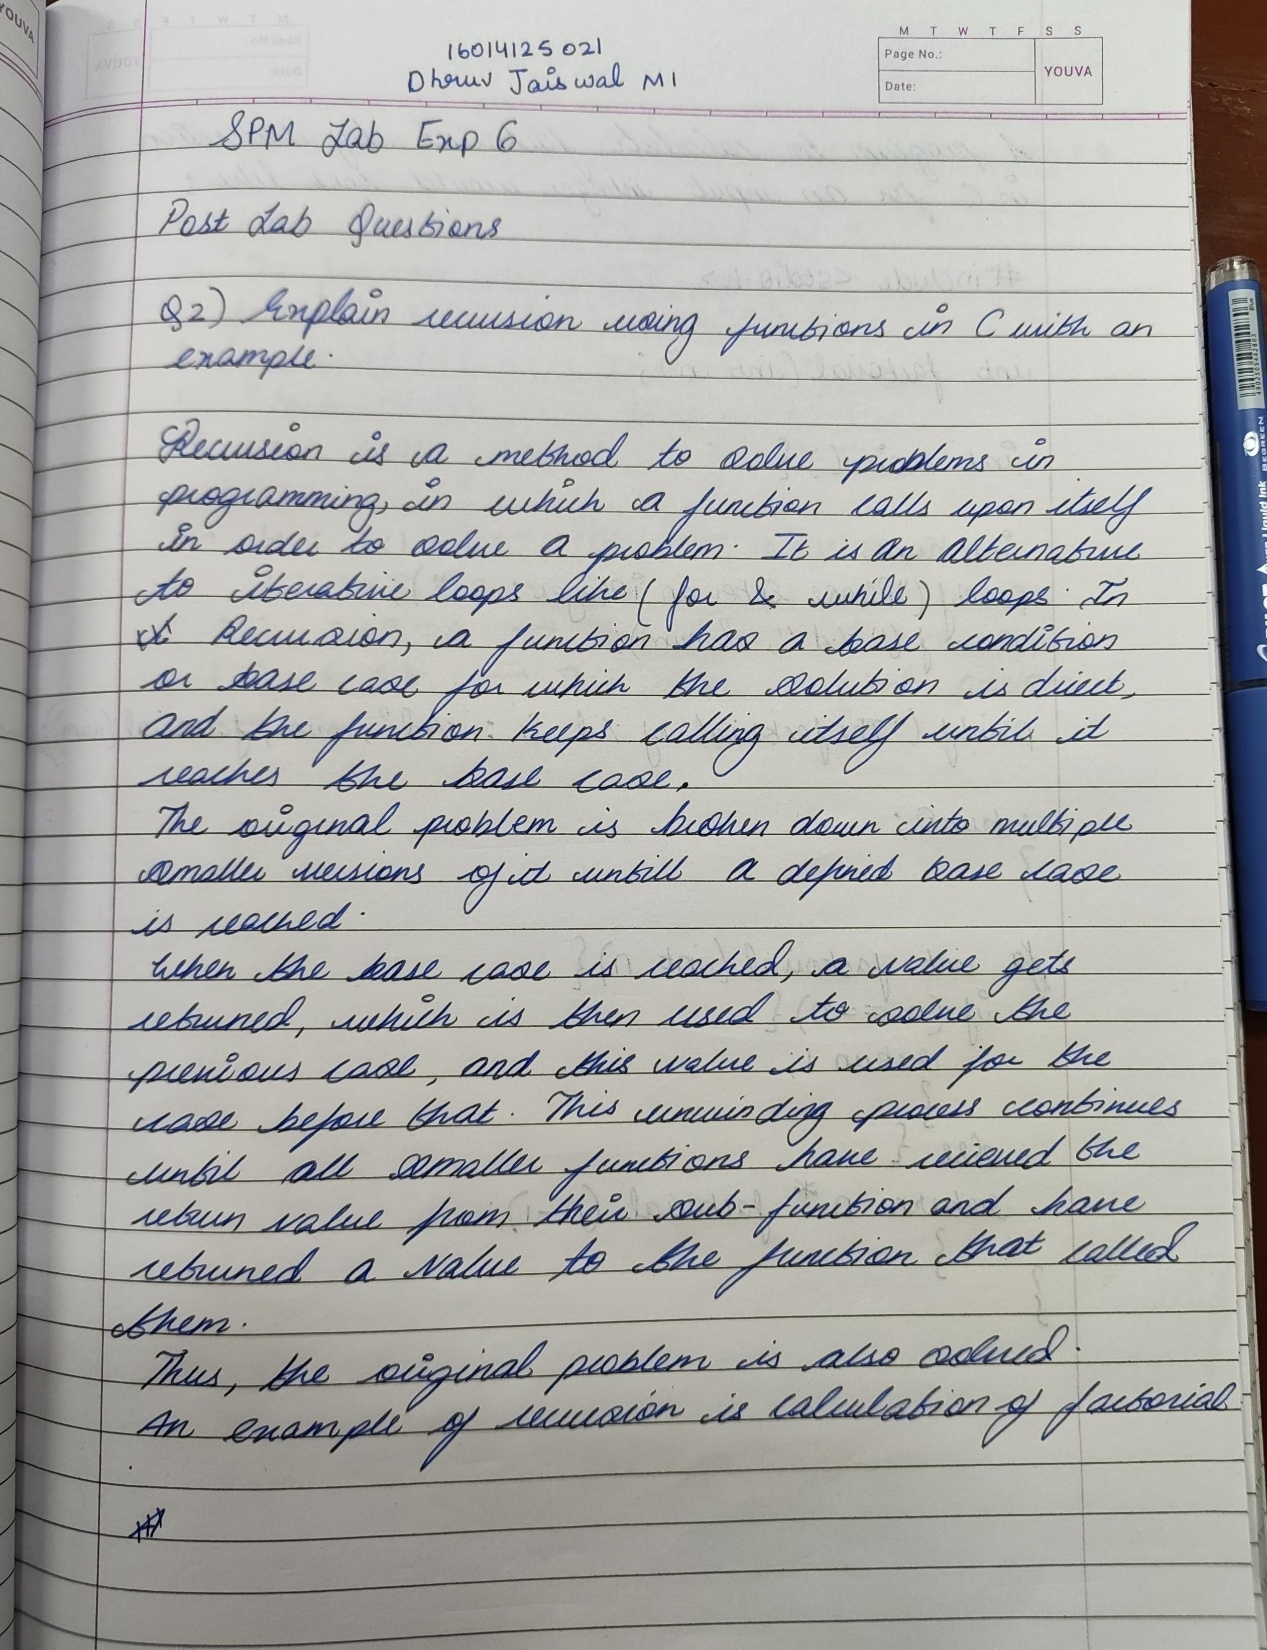 YOUVA
16014125021
Dhruv Jaiswal M1
M T W T F S S
Page No.:
Date:
YOUVA
SPM Lab Exp 6
Post Lab Questions
Q2) Explain recursion using functions in C with an
example.
Recursion is a method to solve problems in
programming, in which a function calls upon itself
in order to solve a problem. It is an alternative
to iterative loops like (for & while) loops. In
Recursion, a function has a base condition
or base case for which the solution is direct,
and the function keeps calling itself until it
reaches the base case.
The original problem is broken down into multiple
smaller versions of it untill a defined base case
is reached.
When the base case is reached, a value gets
returned, which is then used to solve the
previous case, and this value is used for the
case before that. This unwinding process continues
until all smaller functions have recieved the
return value from their sub-function and have
returned a value to the function that called
them.
Thus, the original problem is also solved.
An example of recursion is calculation of factorial